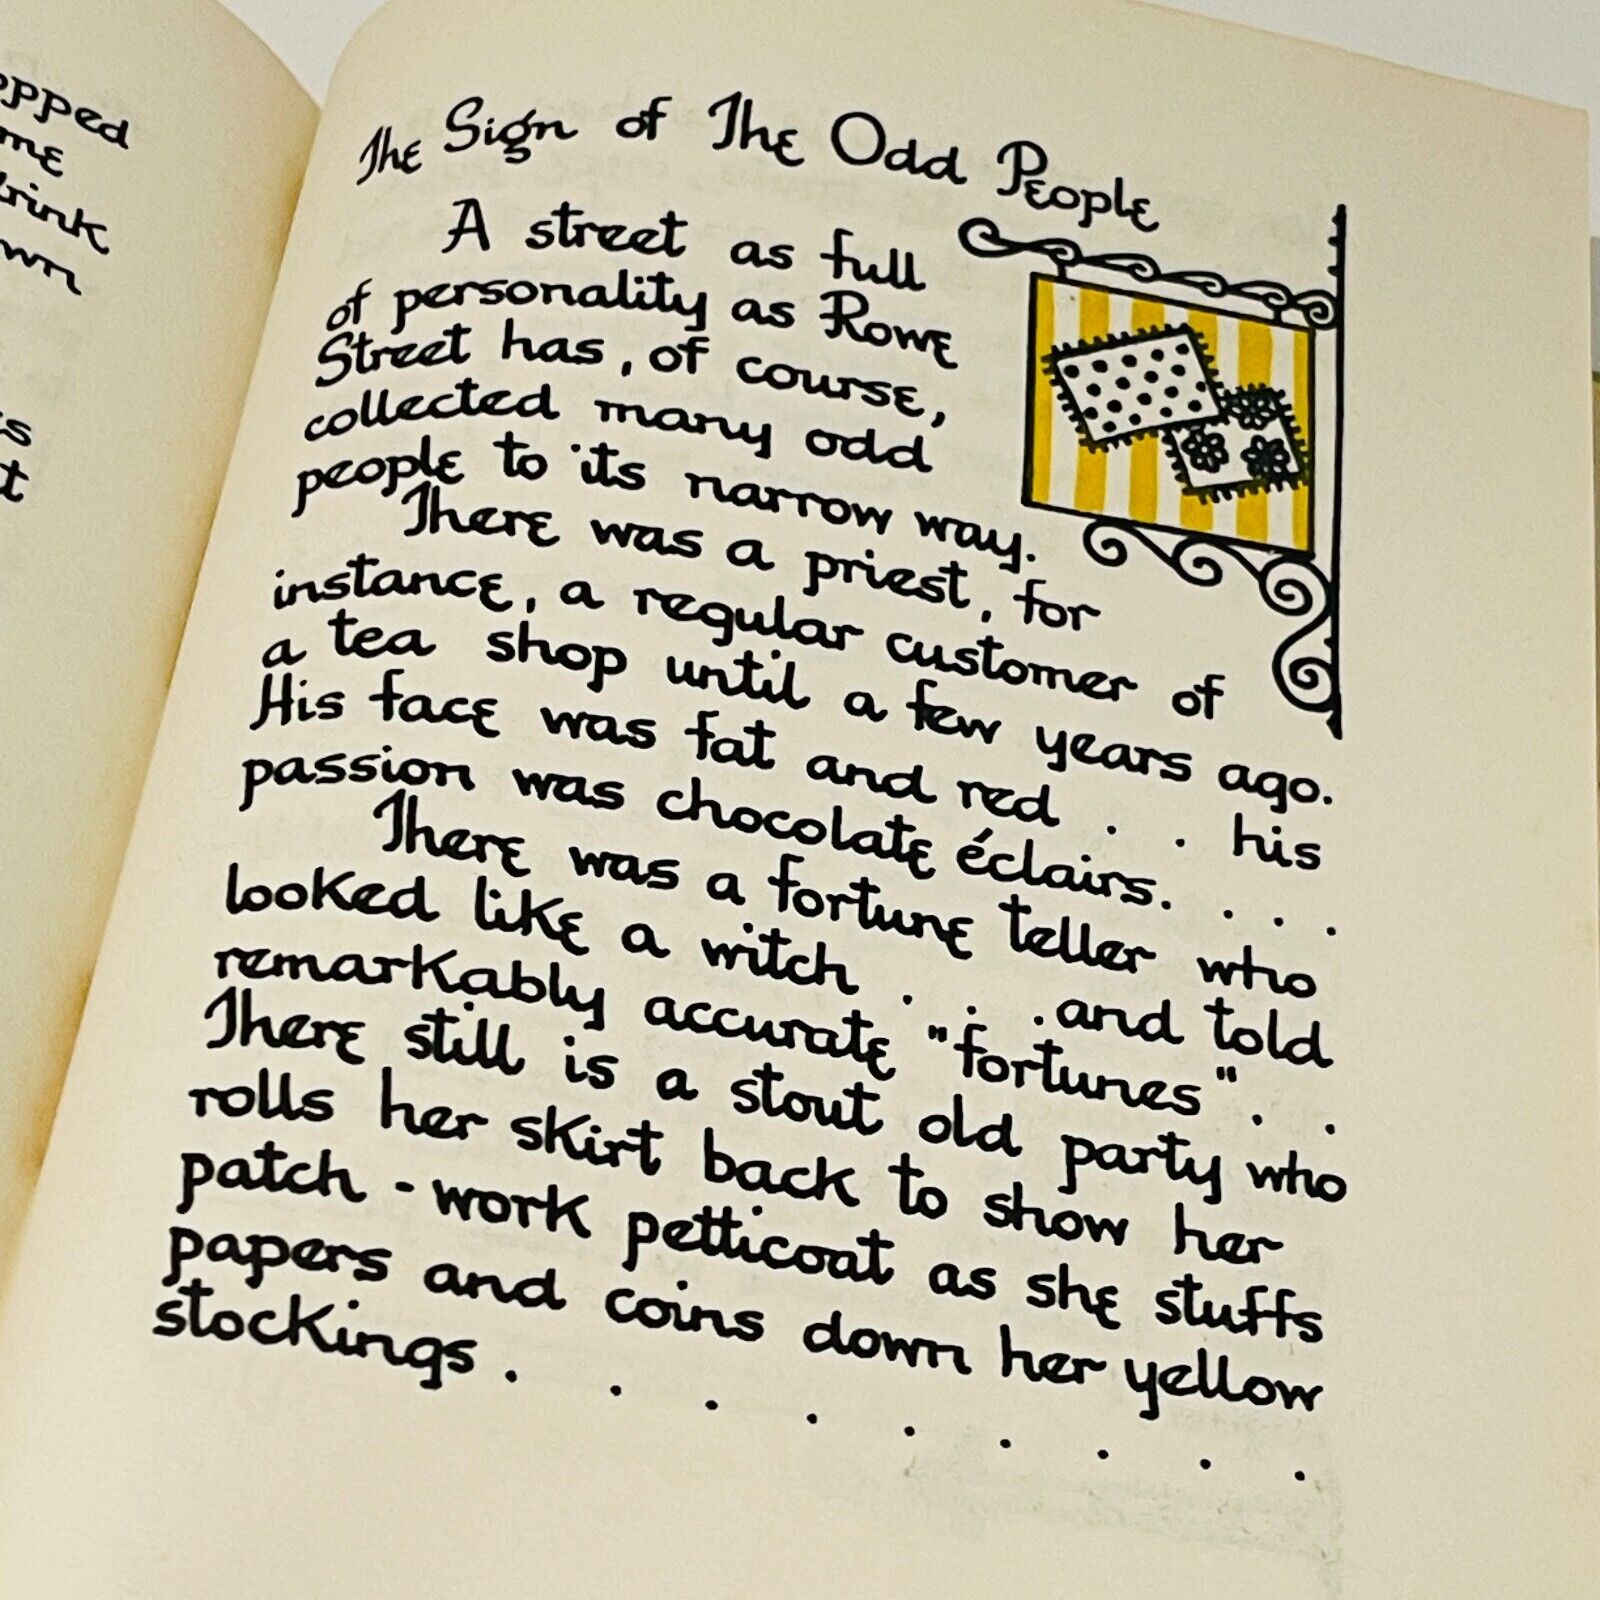 opped
me
rink
wn
s
t
The Sign of The Odd People
A street as full
of personality as Rowe
Street has, of course,
collected many odd
people to its narrow way.
There was a priest, for
instance, a regular customer of
a tea shop until a few years ago.
His face was fat and red . . his
passion was chocolate éclairs. . . .
There was a fortune teller who
looked like a witch . . . and told
remarkably accurate "fortunes" . .
There still is a stout old party who
rolls her skirt back to show her
patch-work petticoat as she stuffs
papers and coins down her yellow
stockings . . . . . . . . .